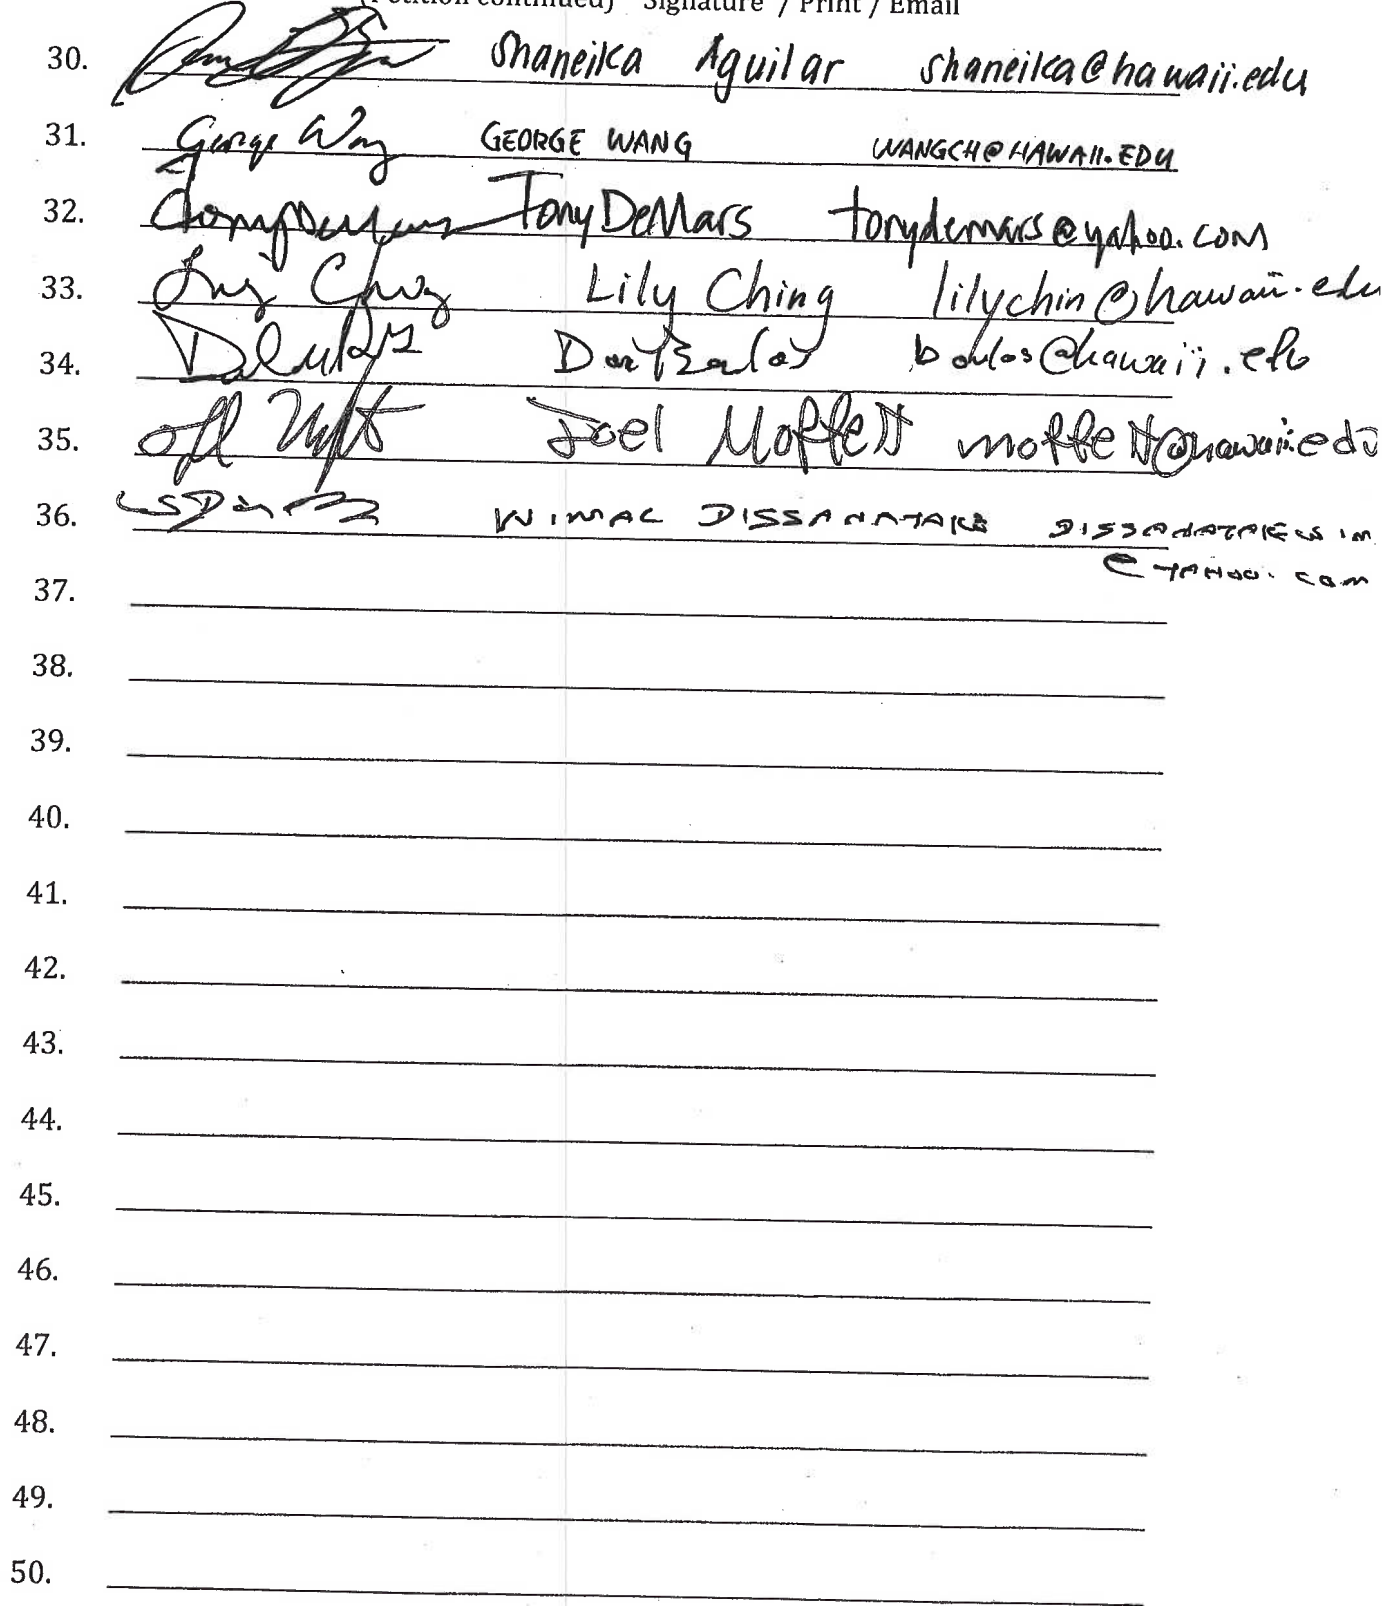 (Petition continued) Signature / Print / Email
30. Shaneika Aguilar shaneika@hawaii.edu
31. George Wang GEORGE WANG WANGCH@HAWAII.EDU
32. Tony DeMars tonydemars@yahoo.com
33. Lily Ching lilychin@hawaii.edu
34. boulos@hawaii.edu
35. Joel Moffett moffett@hawaii.edu
36. WIMAL DISSANAYAKE DISSANAYAKEWIM
@YAHOO.COM
37.
38.
39.
40.
41.
42.
43.
44.
45.
46.
47.
48.
49.
50.